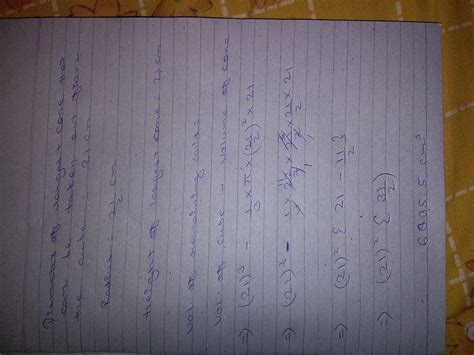 Diameter of largest cone that
can be taken out from
the cube = 21 cm
Radius = 21/2 cm
Height of largest cone = 21 cm
Vol of remaining cube =
Vol. of cube - volume of cone
=) (21)³ - 1/3 × π × (21/2)² × 21
=) (21)³ - 1/3 × 22/7 × 21/2 × 21/2 × 21
=) (21)² { 21 - 11/2 }
=) (21)² { 31/2 )
6835.5 cm³